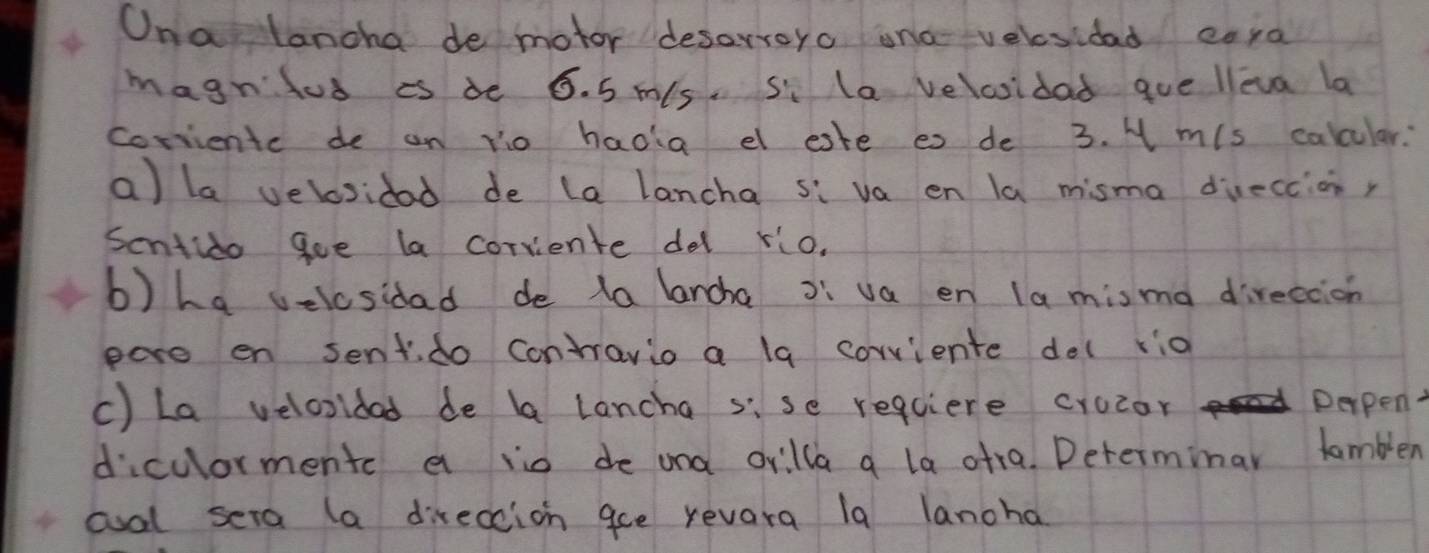 Una lancha de motor desarroya una velosidad coya
magnitud es de 6.5 m/s. Si la velosidad que lleva la
corriente de un rio hacia el este es de 3.4 m/s calcular:
a) la velosidad de la lancha si va en la misma direccion y
sentido que la corriente del rio.
b) La velosidad de la lancha si va en la misma direccion
pero en sentido contrario a la corriente del rio
c) La velosidad de la lancha si se requiere cruzar perpen-
dicularmente el rio de una orilla a la otra. Determimar tambien
cual sera la direccion que yevara la lancha